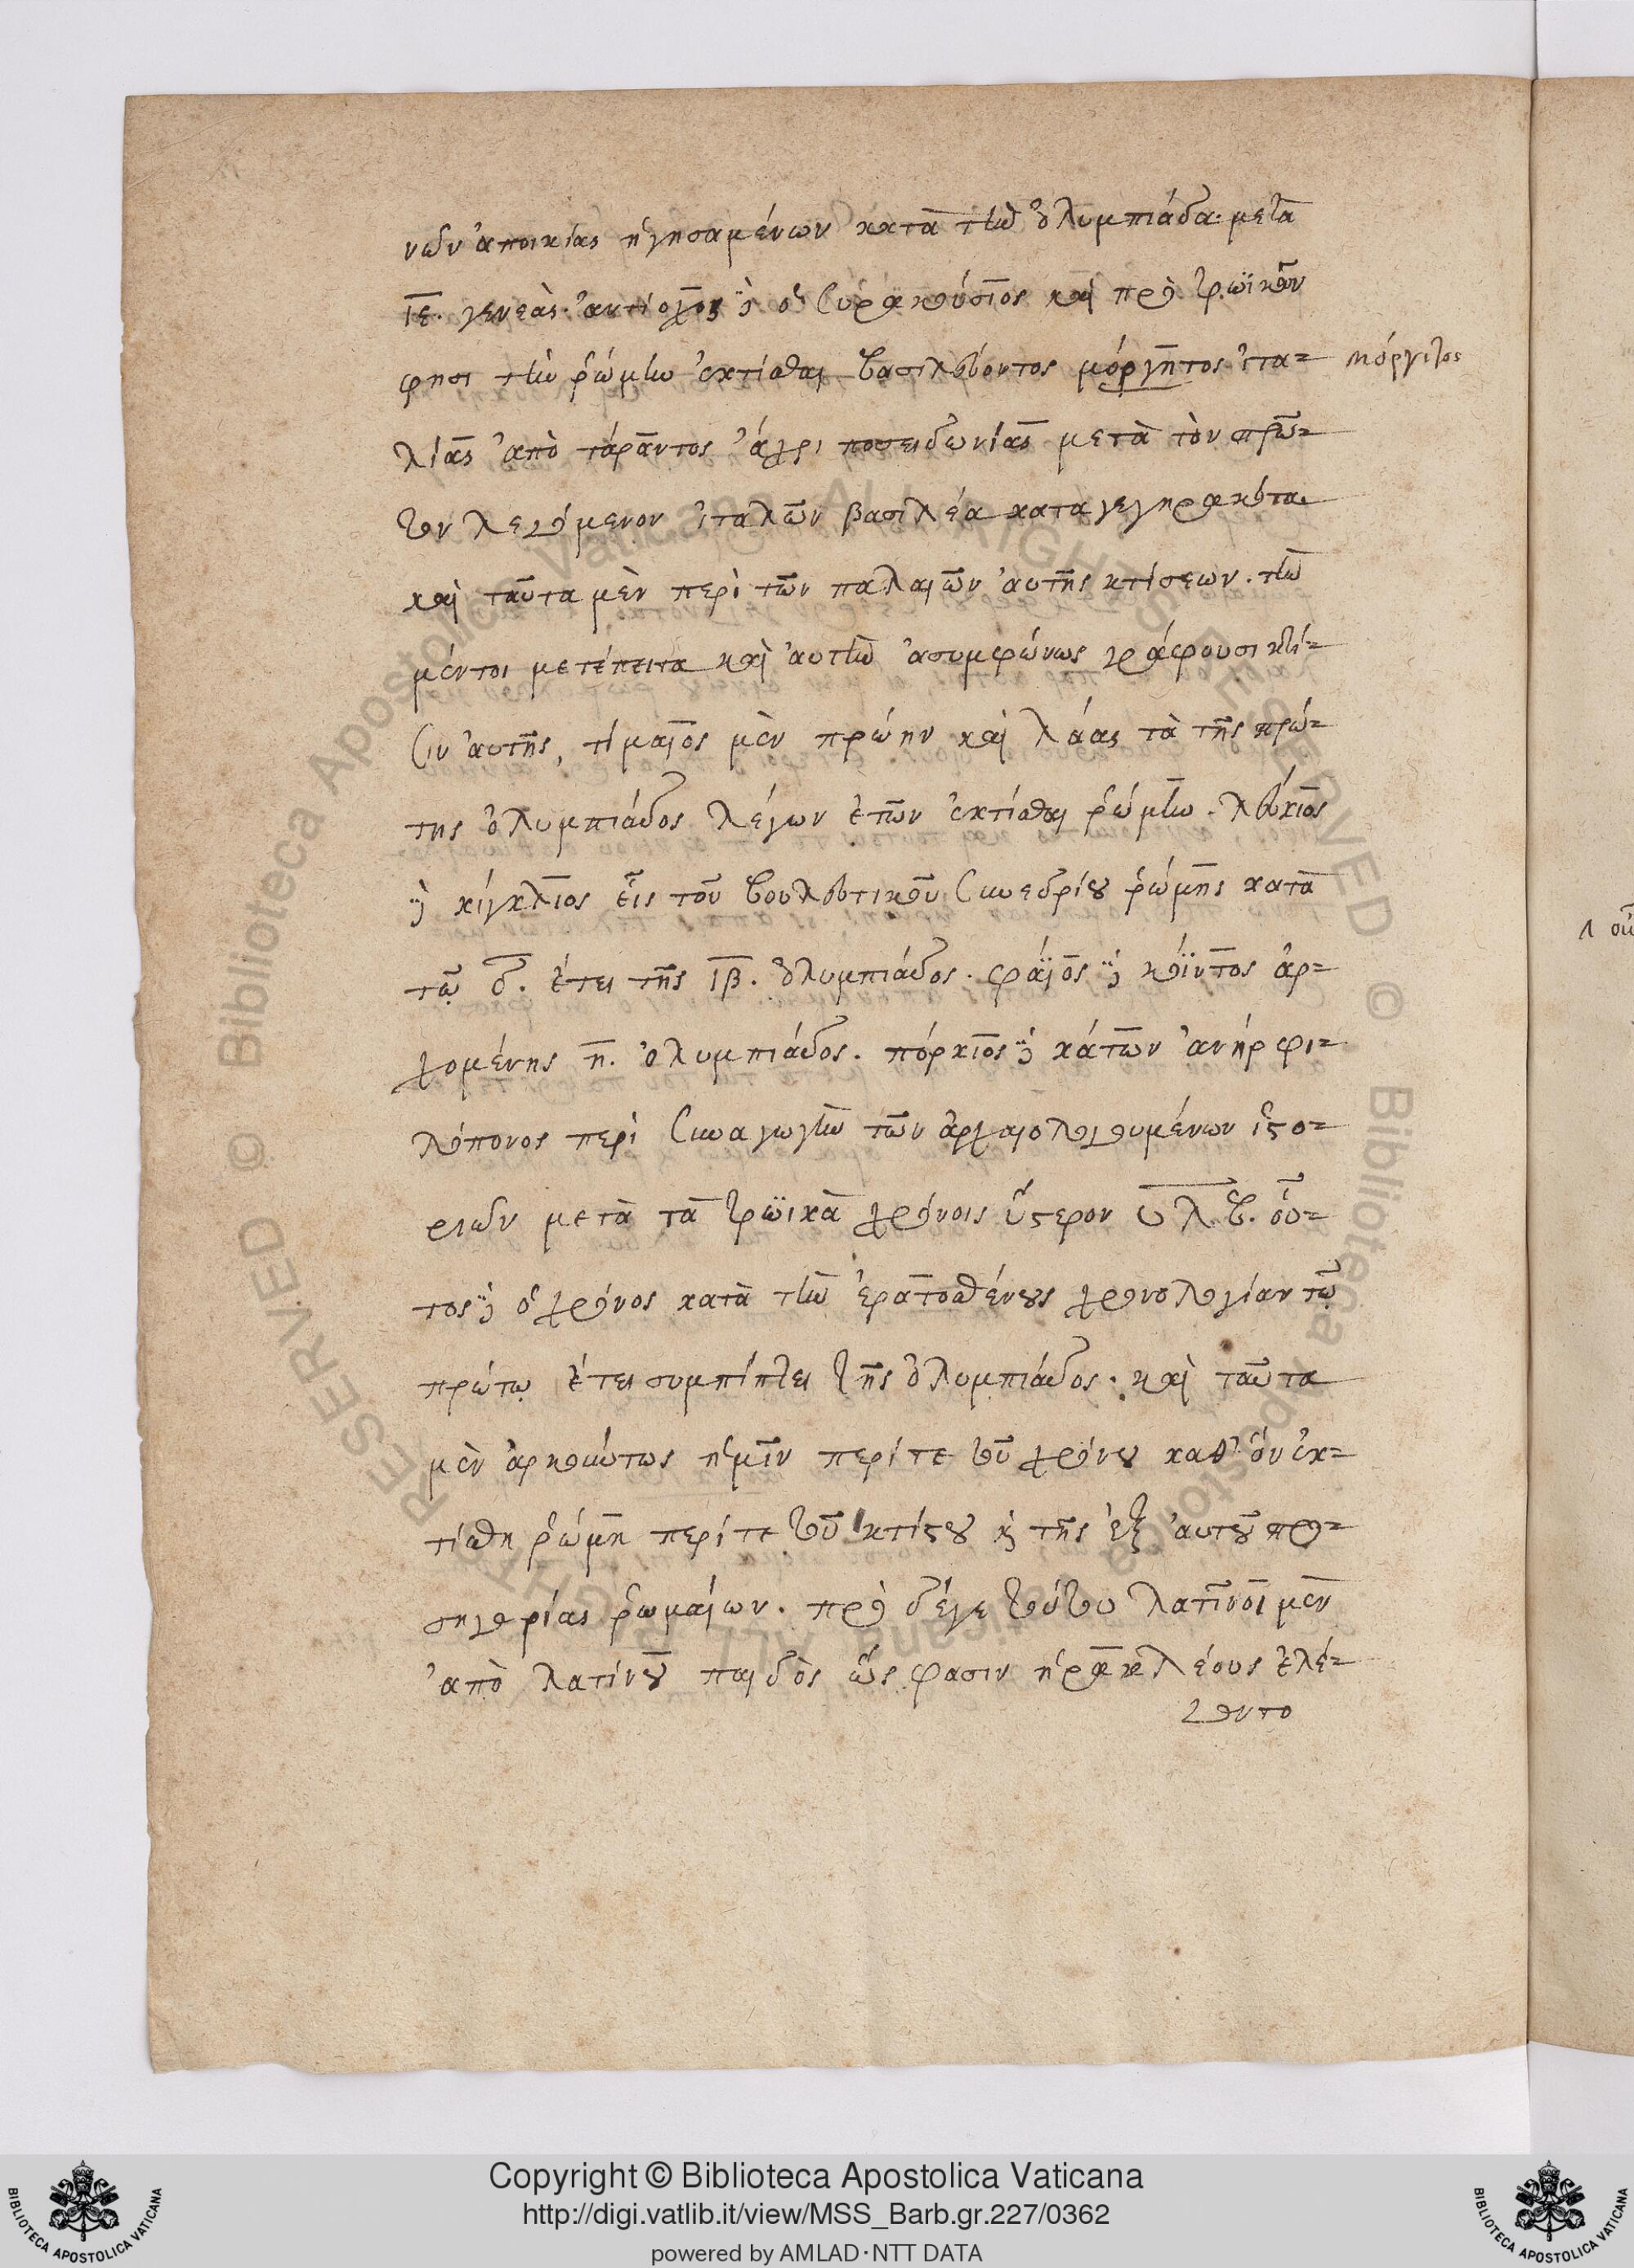 νῶν ἀποικίας ἡγησαμένων κατὰ τὴν ὀλυμπιάδα· μετὰ
ιε. γενεάς. ἀντίοχος δὲ ὁ συρακούσιος καὶ πρὸ τρωϊκῶν
φησι τὴν ῥώμην ἐκτίσθαι βασιλεύοντος μόργητος ἰτα=
μόργιτος
λίας ἀπὸ τάραντος ἄχρι ποσειδωνίας μετὰ τὸν πρῶ=
τον λεγόμενον ἰταλῶν βασιλέα καταγεγηρακότα.
καὶ ταῦτα μὲν περὶ τῶν παλαιῶν αὐτῆς κτίσεων. τὴν
μέντοι μετέπειτα καὶ αὐτὴν ἀσυμφώνως γράφουσι κτί=
σιν αὐτῆς, τίμαιος μὲν πρώην καὶ λάας τὰ τῆς πρώ=
της ὀλυμπιάδος λέγων ἐτῶν ἐκτίσθαι ῥώμην. λεύκιος
δὲ κίγκλιος εἷς τοῦ βουλευτικοῦ συνεδρίου ῥώμης κατὰ
τῷ δ. ἔτει τῆς ιβ. ὀλυμπιάδος. φάϊος δὲ κόϊντος ἀρ=
χομένης η. ὀλυμπιάδος. πόρκιος δὲ κάτων ἀνὴρ φι=
λόπονος περὶ συναγωγὴν τῶν ἀρχαιολογουμένων ἱστο=
ριῶν μετὰ τὰ τρωϊκὰ χρόνοις ὕστερον υλβ. οὗ=
τος δὲ ὁ χρόνος κατὰ τὴν ἐρατοσθένους χρονολογίαν τῷ
πρώτῳ ἔτει συμπίπτει τῆς ὀλυμπιάδος. καὶ ταῦτα
μὲν ἀρκούντως ἡμῖν περί τε τοῦ χρόνου καθ' ὃν ἐκ=
τίσθη ῥώμη περί τε τοῦ κτίστου καὶ τῆς ἐξ αὐτοῦ προ=
σηγορίας ῥωμαίων. πρὸ δέγε τούτου λατῖνοι μὲν
ἀπὸ λατίνου παιδὸς ὥς φασιν ἡρακλέους ἐλέ=
γοντο
Copyright © Biblioteca Apostolica Vaticana
http://digi.vatlib.it/view/MSS_Barb.gr.227/0362
powered by AMLAD·NTT DATA